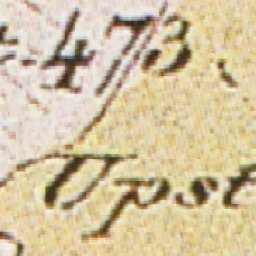 473
Upst